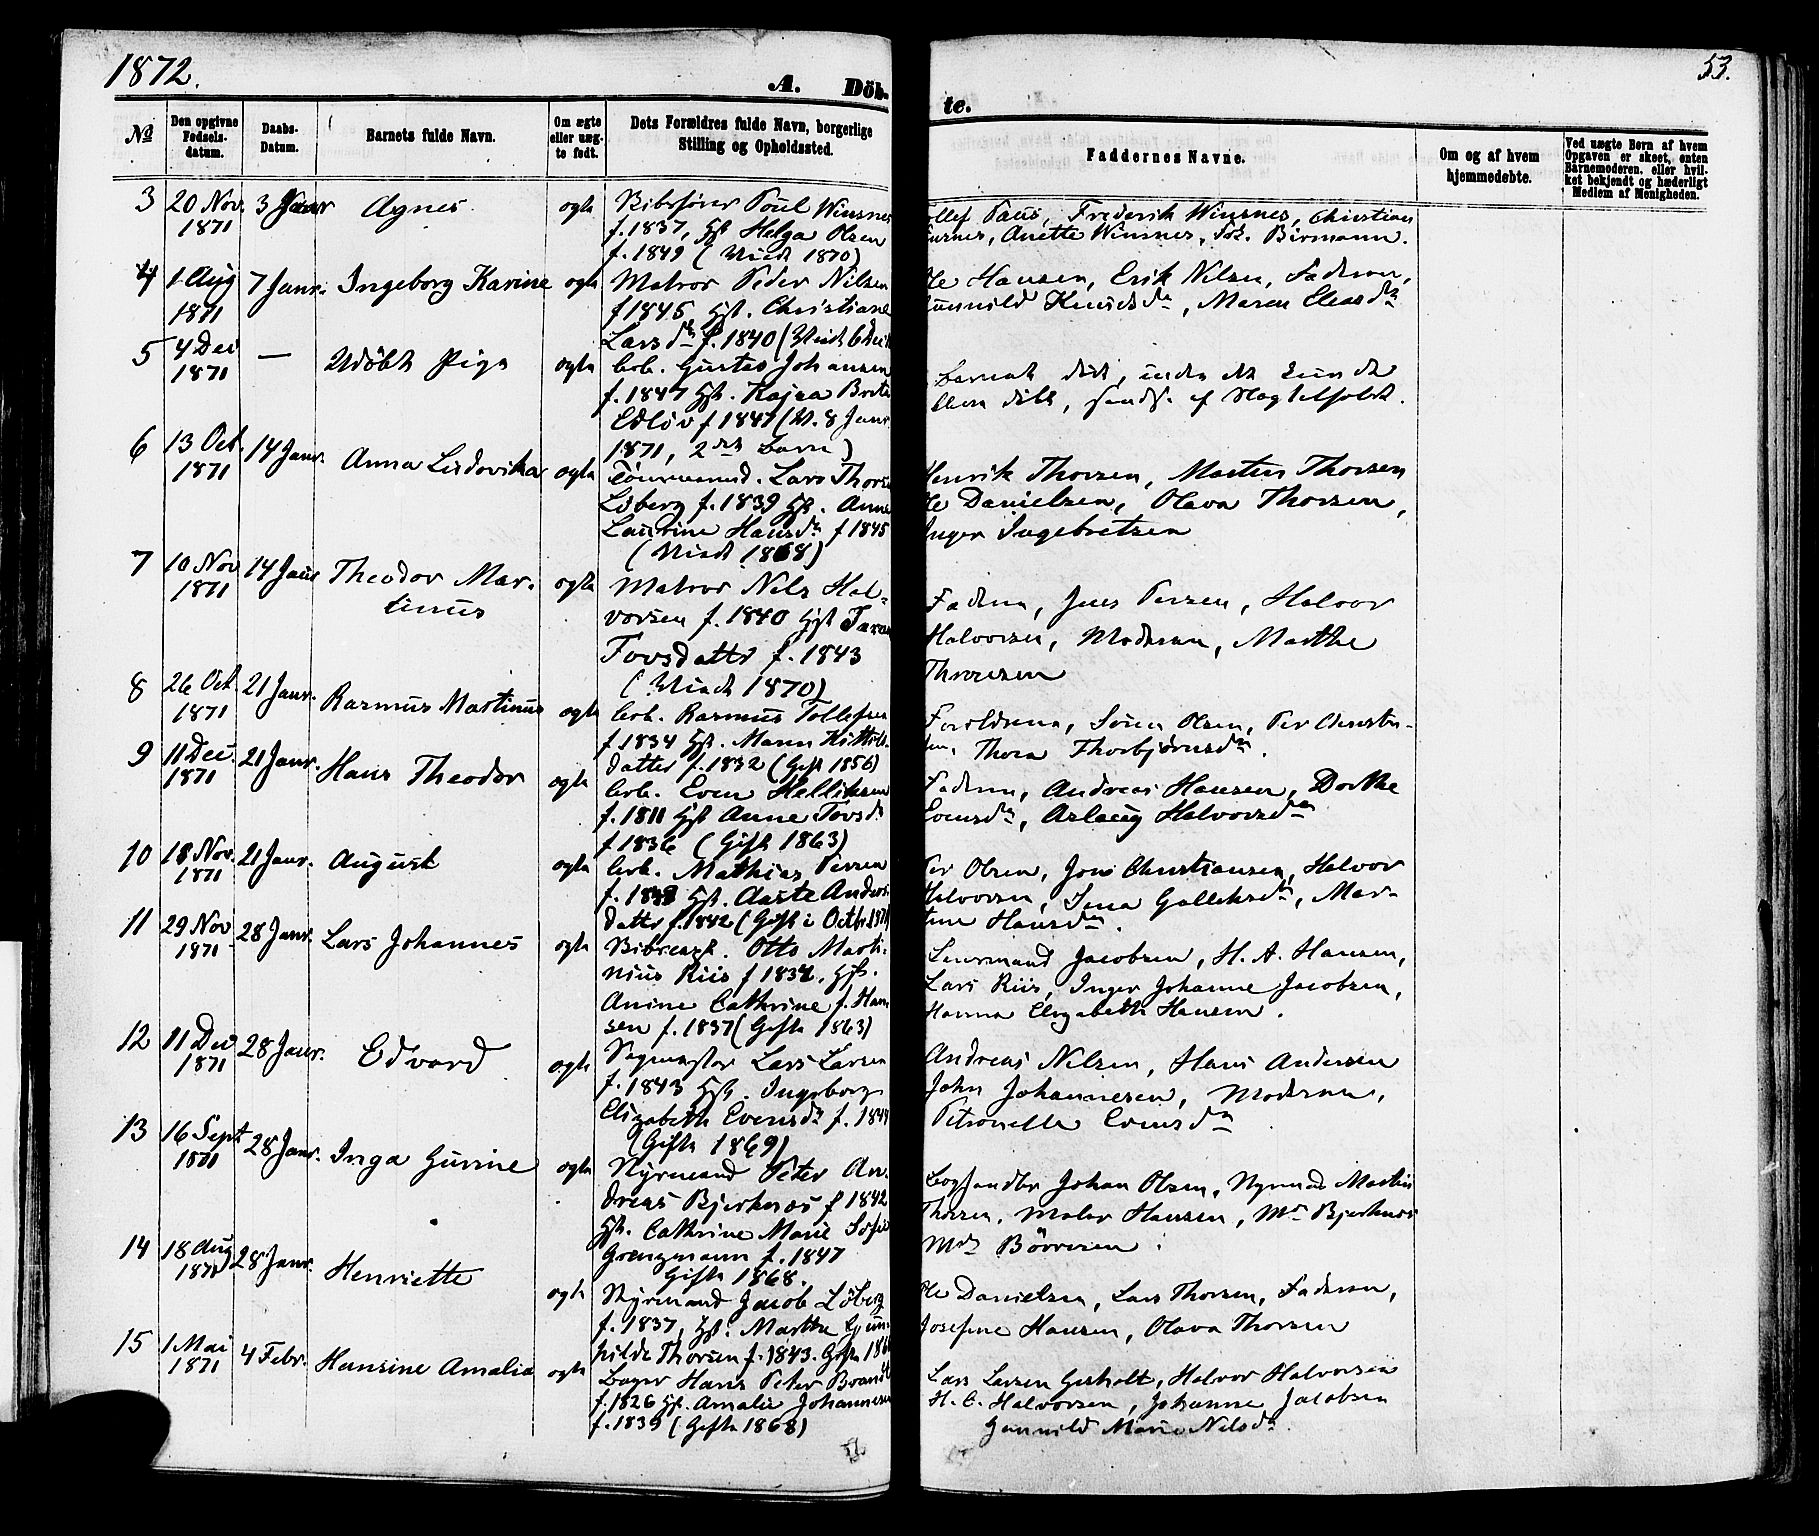 1872.
53.
A. Döb-
te.
No
Den opgivne Fødsels-datum.
Daabs-Datum.
Barnets fulde Navn.
Om ægte eller uæg-te født.
Dets Forældres fulde Navn, borgerlige Stilling og Opholdssted.
Faddernes Navne.
Om og af hvem hjemmedøbte.
Ved uægte Børn af hvem Opgaven er skeet, enten Barnemoderen, eller hvil-ket bekjendt og hæderligt Medlem af Menigheden.
3 20 Nov. 1871 3 Janr Agnes ægte
Poul Winsnes
f. 1837, Hst. Helga Olsen
f. 1849 (Viede 1870)
Paus, Frederik Winsnes, Christian
Anette Winsnes, Birmann.
4 1 Aug 1871 7 Janr. Ingeborg Karine ægte
Matros Peder Nilsen
f 1845 Hst. Christiane
Larsdr f. 1840
Hansen, Erik Nilsen, Faderen,
Gunnild Knudsdr, Maren Eleasdr
5 4 Dec 1871 — Udöbt Pige ægte
Arb. Gustav Johansen
f. 1847 Hst. Kajsa Brita
f 1847 (V. 8 Janr
1871, 2det Barn)
Barnet död, inden det kunde
blive döbt,
6 13 Oct. 1871 14 Janr. Anna Ludovika ægte
Tömmermand. Lars Thors.
Löberg f. 1839 Hst. Anne
Laurine Hansdr f 1845
(Viede 1868)
Henrik Thorsen, Martin Thorsen
Ole Danielsen, Olava Thorsen,
Inger Ingebretsen
7 10 Nov 1871 14 Janr Theodor Mar-
tinus ægte
Matros Nils Hal-
vorsen f. 1840 Hst Taran
Tovsdatter f. 1843
(Viede 1870)
Faderen, Jens Persen, Halvor
Halvorsen, Moderen, Marthe
8 26 Oct. 1871 21 Janr. Rasmus Martinus ægte
Arb. Rasmus Tollefsen
f 1834 Hst. Maren Kittils-
datter f. 1832 (Gift 1856)
Forældrene, Sören Olsen, Per Christen-
sen, Thora Thorbjörnsdr.
9 11 Dec. 1871 21 Janr. Hans Theodor ægte
Arb. Even Helliksen
f. 1811 Hst Anne Tovsdr
f 1836 (Gift 1863)
Faderen, Andreas Hansen, Dorthe
Evensdr, Aslaug Halvorsdr
10 18 Nov. 1871 21 Janr. August ægte
Arb. Mathias Persen
Hst. Aaste Anders-
datter f. 1842 (Gift i Octbr. 1871
Per Olsen, Jons Christiansen, Halvor
Halvorsen, Gulliksdr, Mar-
tine Hansdr.
11 29 Nov 1871 28 Janr. Lars Johannes ægte
Otto Marti-
nius Riis f 1834, Hst.
Anine Cathrine f. Han-
sen f. 1837 (Gifte 1863)
Jacobsen, H. A. Hansen,
Lars Riis, Inger Johanne Jacobsen,
Hanna Elizabeth Hansen.
12 11 Dec 1871 28 Janr. Edvard ægte
Sagmester Lars Larsen
f. 1843 Hst. Ingeborg
Elizabeth Evensdr f. 1844
(Gifte 1869)
Andreas Nilsen, Hans Andersen
John Johannesen, Moderen,
Petronelle Evensdr
13 16 Sept 1871 28 Janr. Inga Gurine ægte
Styrmand Peter An-
dreas Bjerknæs f 1842
Hst. Cathrine Marie Sofie
Grenzmann f. 1847
Gifte 1868.
Boghandler Johan Olsen, Styrmand Martin
Thorsen, Maler Hansen, Bjerknæs
14 18 Aug 1871 28 Janr. Henriette ægte
Styrmand Jacob Löberg
f. 1837, Hst. Marthe Gun-
hilde Thorsen f. 1843. Gifte
Ole Danielsen, Lars Thorsen, Faderen,
Josefine Hansen, Olava Thorsen
15 1 Mai 1871 4 Febr. Hansine Amalia ægte
Bager Hans Peter Brandt
f. 1826 Hst. Amalie Johannesen
f. 1839 (Gifte 1868)
Lars Larsen Gisholt, Halvor Halvorsen
H. C. Halvorsen, Johanne Jacobsen
Gunnild Marie Nilsdr.